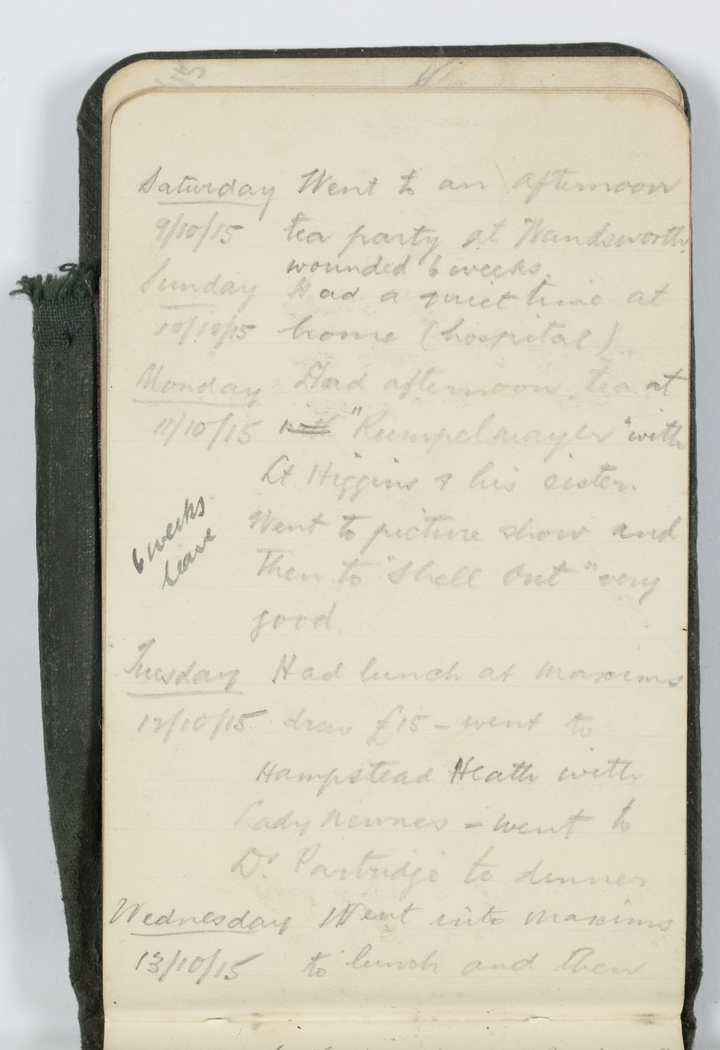 Saturday Went to an afternoon
9/10/15 tea party at Wandsworth
wounded 6 weeks.
Sunday Had a quiet time at
10/10/15 home (hospital)
Monday Had afternoon tea at
11/10/15 with "Rumpelmayer" with
Lt Higgins & his sister.
Went to picture show and
6 weeks
leave
then to "Shell Out" very
good.
Tuesday Had lunch at Maxims
12/10/15 draw £15 - went to
Hampstead Heath with
Lady Newnes - went to
Dr. Partridge to dinner
Wednesday Went into Maxims
13/10/15 to lunch and then